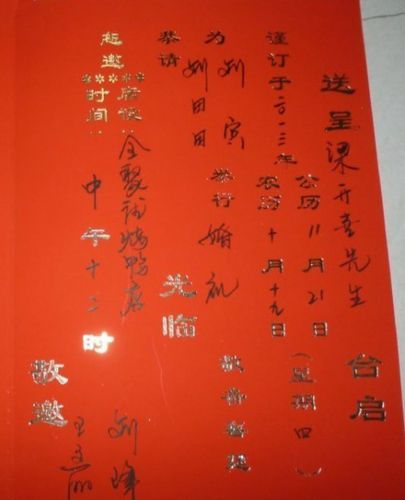 送呈 梁开喜先生 台启
谨订于二〇一三年
公历 11月21日(星期四)
农历 十月十九日
为 刘寅
刘田田
举行 婚礼 敬备喜筵
恭请 光临
席设: 全聚 烤鸭店
时间: 中午十二时
敬邀
刘峰
王 丽